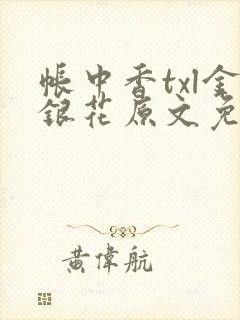 帳中香txl金
銀花原文免
黃偉航